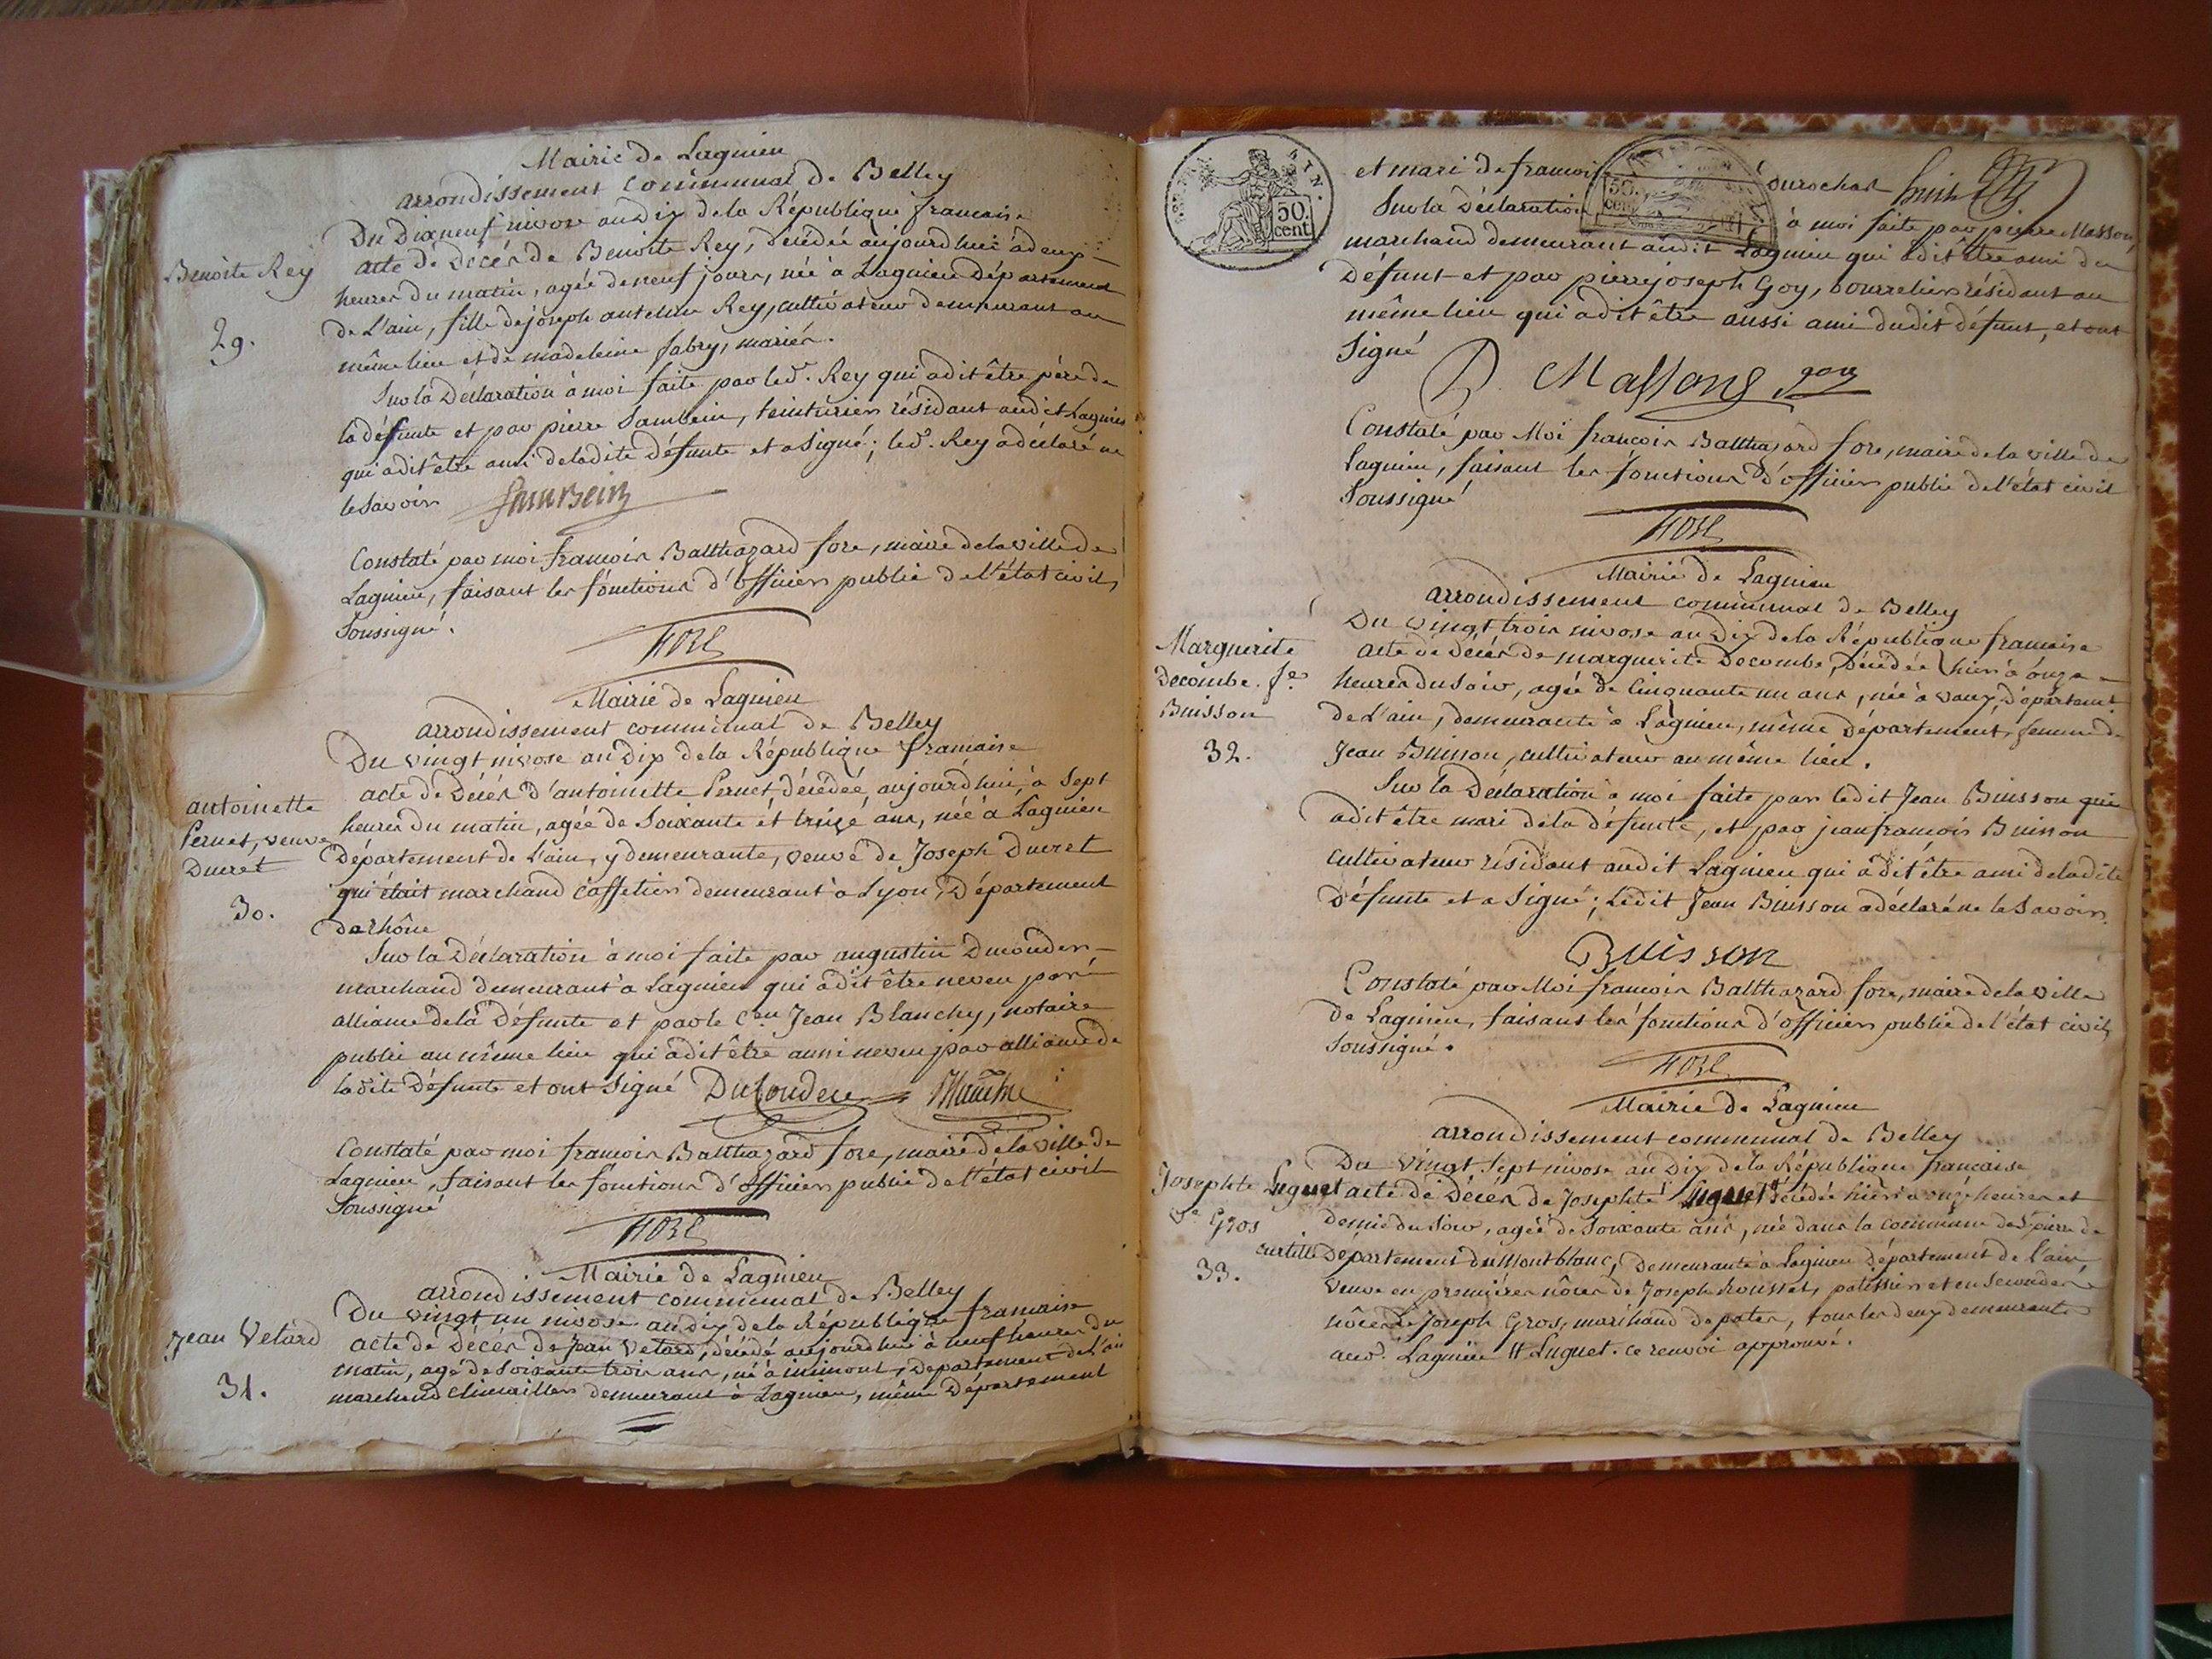 Mairie de Lagnieu
arrondissement communal de Belley
Du Dixneuf nivose an Dix de la République francaise
Benoite Rey
29.
acte de Décès de Benoite Rey, décédée aujourd'hui à deux
heures du matin, agée de neuf jours, née à Lagnieu Département
de L'ain, fille de joseph antelme Rey, cultivateur demeurant au
même lieu et de madeleine fabry, mariés.
Sur la Déclaration à moi faite par led. Rey qui a dit être père de
la défunte et par pierre Sambein, teinturier résidant audit Lagnieu
qui a dit être ami de ladite défunte et a signé; led. Rey a déclaré ne
le savoir Sambein
Constaté par moi francois Balthazard fore, maire de la ville de
Lagnieu, faisant les fonctions d'officier public de l'état civil
Soussigné.
FORE
Mairie de Lagnieu
arrondissement communal de Belley
Du vingt nivose an Dix de la République francaise
antoinette
Pernet, veuve
Ducret
30.
acte de Décès d'antoinette Pernet décédée, aujourd'hui, à Sept
heures du matin, agée de Soixante et treize ans, née à Lagnieu
Département de L'ain, y demeurante, veuve de Joseph Ducret
qui était marchand caffetier demeurant à Lyon, Département
du rhône
Sur la Déclaration à moi faite par augustin
marchand demeurant à Lagnieu qui a dit être neveu par
alliance de la Défunte et par le Cen Jean Blanchy, notaire
public au même lieu qui a dit être aussi neveu par alliance de
ladite Défunte et ont signé
Constaté par moi francois Balthazard fore, maire de la ville de
Lagnieu, faisant les fonctions d'officier public de l'état civil
Soussigné
FORE
Mairie de Lagnieu
arrondissement communal de Belley
Du vingt un nivose an dix de la République francaise
Jean Vetard
31.
acte de décès de Jean Vetard, décédé aujourd'hui à neuf heures du
matin, agé de Soixante trois ans, né à inimont, Département de L'ain
marchand clincailler demeurant à Lagnieu, même Département
50.
cent
et mari de
Sur la Déclaration à moi faite par pierre Masson,
marchand demeurant audit Lagnieu qui a dit être ami du
Défunt et par pierre joseph Goy, bourrelier résidant au
même lieu qui a dit être aussi ami dudit défunt, et ont
Signé
P. Massong goy
Constaté par Moi francois Balthazard fore, maire de la ville de
Lagnieu, faisant les fonctions d'officier public de l'état civil
Soussigné
FORE
Mairie de Lagnieu
arrondissement communal de Belley
Du vingt trois nivose an Dix de la République francaise
Marguerite
Decombe. fe.
Buisson
32.
acte de décès de marguerite Decombe, décédée hier à onze
heures du soir, agée de Cinquante un ans, née à vaux, Département
de L'ain, demeurante à Lagnieu, même Département, femme de
Jean Buisson, cultivateur au même lieu.
Sur la Déclaration à moi faite par ledit Jean Buisson qui
a dit être mari de la défunte, et par jean francois Buisson
cultivateur résidant audit Lagnieu qui a dit être ami de ladite
Défunte et a signé; Ledit Jean Buisson a déclaré ne le Savoir.
Buisson
Constaté par Moi francois Balthazard fore, maire de la ville
de Lagnieu, faisant les fonctions d'officier public de l'état civil
Soussigné.
FORE
Mairie de Lagnieu
arrondissement communal de Belley
Du vingt Sept nivose an Dix de la République francaise
Josephte Luguet
Ve. Gros
33.
acte de Décès de Josephte Luguet décédée hier à onze heures et
demie du soir, agée de Soixante ans, née dans la commune de St. pierre de
curtille Département du Montblanc, demeurante à Lagnieu département de L'ain,
veuve en premières nôces de Joseph Rousset, patissier et en secondes
nôces de Joseph Gros, marchand de pates, tous les deux demeurants
aud. Lagnieu # Luguet. ce renvoi approuvé.